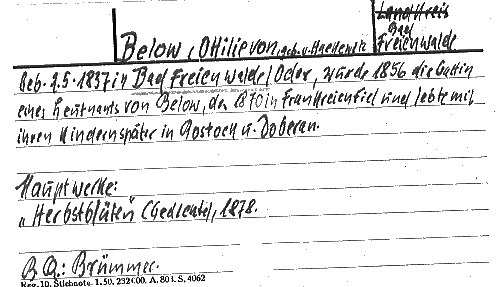 Below, Ottilie von, geb. v. Haenewie
Landkreis
Bad
Freienwalde
Geb. 7.5.1837 in Bad Freienwalde/Oder, wurde 1856 die Gattin
eines Leutnants von Below, der 1870 in Frankreich fiel und lebte mit
ihren Kindern später in Rostock u. Doberan.
Hauptwerke:
„Herbstblüten" (Gedichte), 1878.
B.Q.: Brümmer.
Reg. 10. Stichnote. 1.50. 2324.00. A. 803. S. 4062